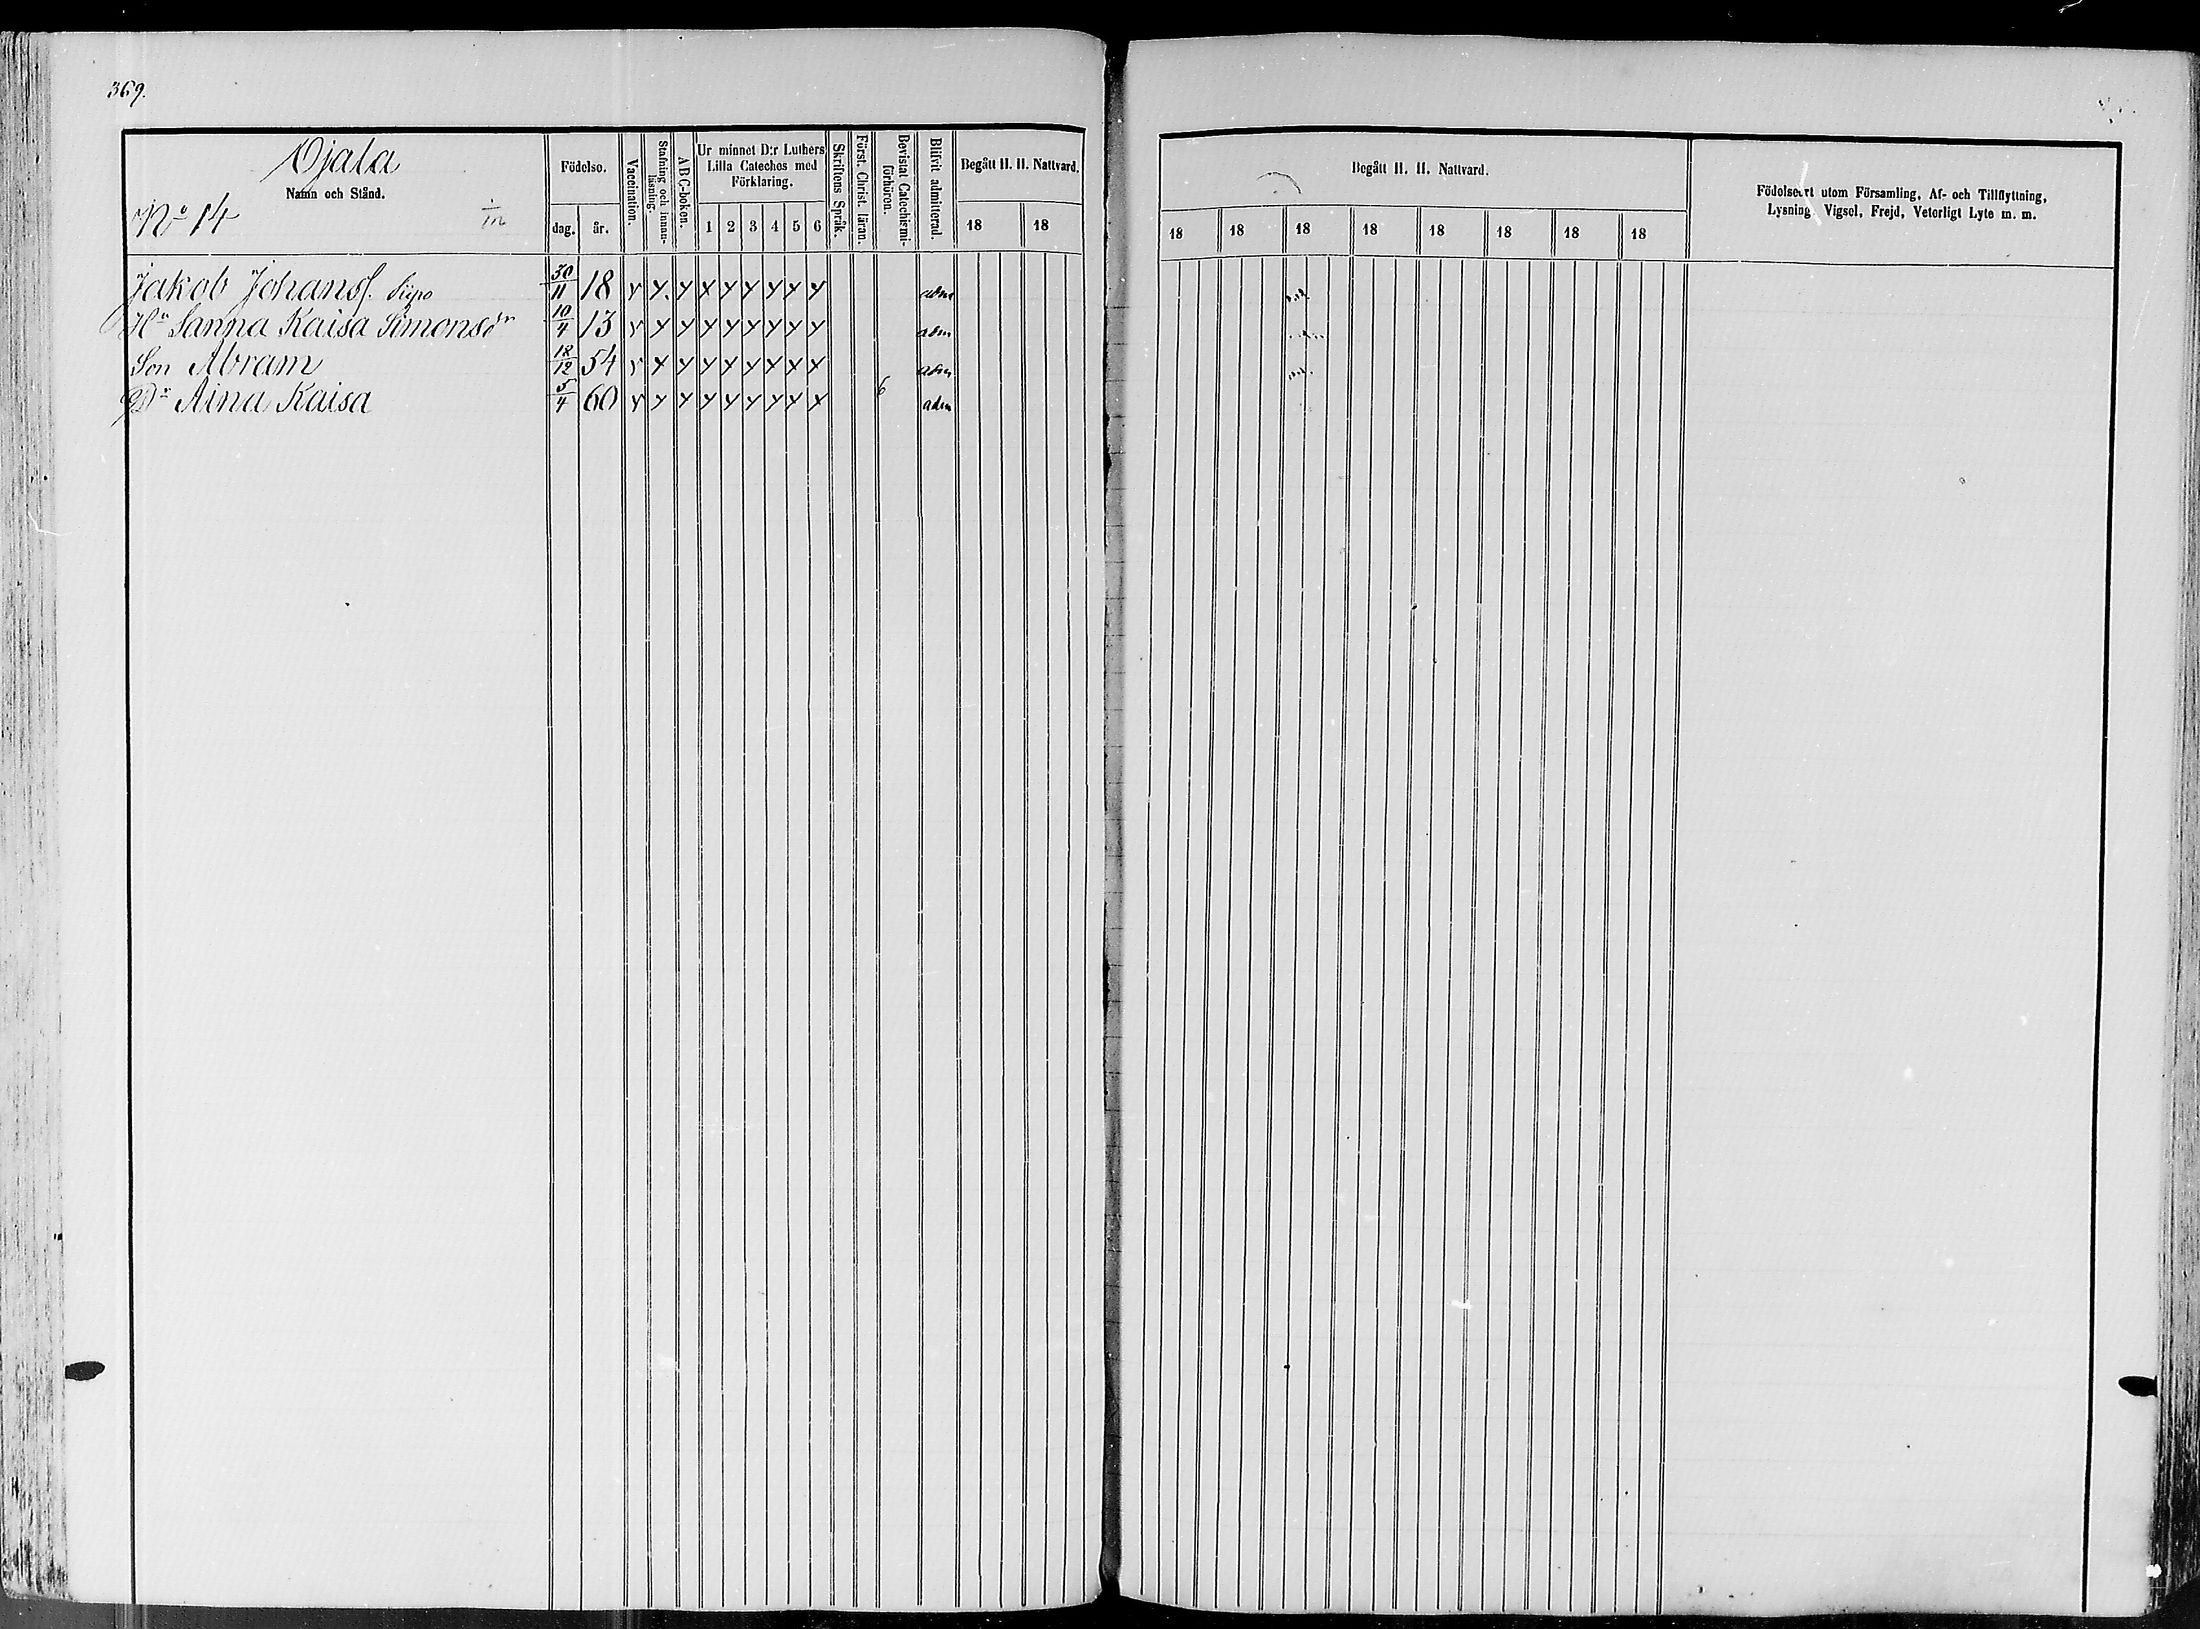 369.
Ojala
Namn och Stånd.
No 14
Födelse.
dag. år.
Vaccination.
Stafning och innan-läsning.
ABC-boken.
Ur minnet D:r Luthers Lilla Cateches med Förklaring.
1 2 3 4 5 6
Skriftens Språk.
Först. Christ. läran.
Bevistat Catechismi-förhören.
Blifvit admitterad.
Begått H. H. Nattvard.
18 18
Begått H. H. Nattvard.
18 18 18 18 18 18 18 18
Födelseort utom Församling, Af- och Tillflyttning,
Lysning, Vigsel, Frejd, Veterligt Lyte m. m.
Jakob Johanss. Siipo 30/11 18 adm
Hu Sanna Kaisa Simonsdr 10/4 13 adm
Son Abram 18/12 54 adm
Dr Aina Kaisa 5/4 60 6 adm